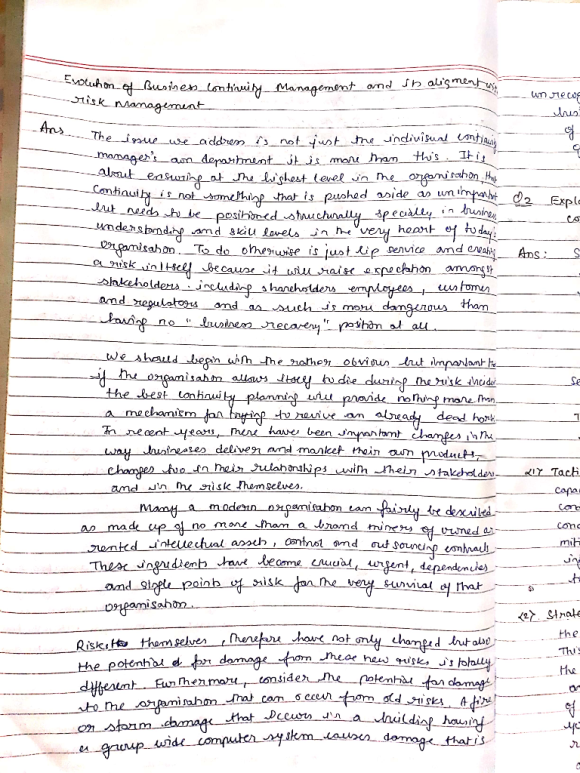 Evolution of Business Continuity Management and its aligment with
risk Management
Ans The issue we address is not just the indivisual continuity
manager's own department it is more than this. It is
about ensuring at the highest level in the organisation, that
Continuity is not something that is pushed aside as unimportant
but needs to be positioned structurally specially in business
understanding and skill levels in the very heart of today's
organisation. To do otherwise is just lip service and creating
a risk in itself because it will raise expectation amongst
stakeholders: including shareholders employees, customer
and regulators and as such is more dangerous than
having no "business recovery" position at all.
We should begin with the rather obvious but important
if the organisation allows itself to die during the risk incident
the best continuity planning will provide nothing more than
a mechanism for trying to revive an already dead
In recent years, there have been important changes, in the
way businesses deliver and market their own products,
changes too in their relationships with their stakeholders
and in the risk themselves.
Many a modern organisation can fairly be described
as made up of no more than a brand of owned or
rented intellectual assets, control and outsourcing contracts
These ingredients have become crucial, urgent, dependencies
and single points of risk for the very survival of that
organisation.
Risk themselves, therefore have not only changed but also
the potential for damage from these new risks is totally
different Furthermore, consider the potential for damage
to the organisation that can occur from old risks. A fire
or storm damage that occurs in a building housing
a group wide computer system causes damage that is
un recog
busi
of
Q2 Expl
co
Ans: S
Se
T
<1> Tacti
capa
con
conc
miti
<2> Strate
the
This
the
or
of